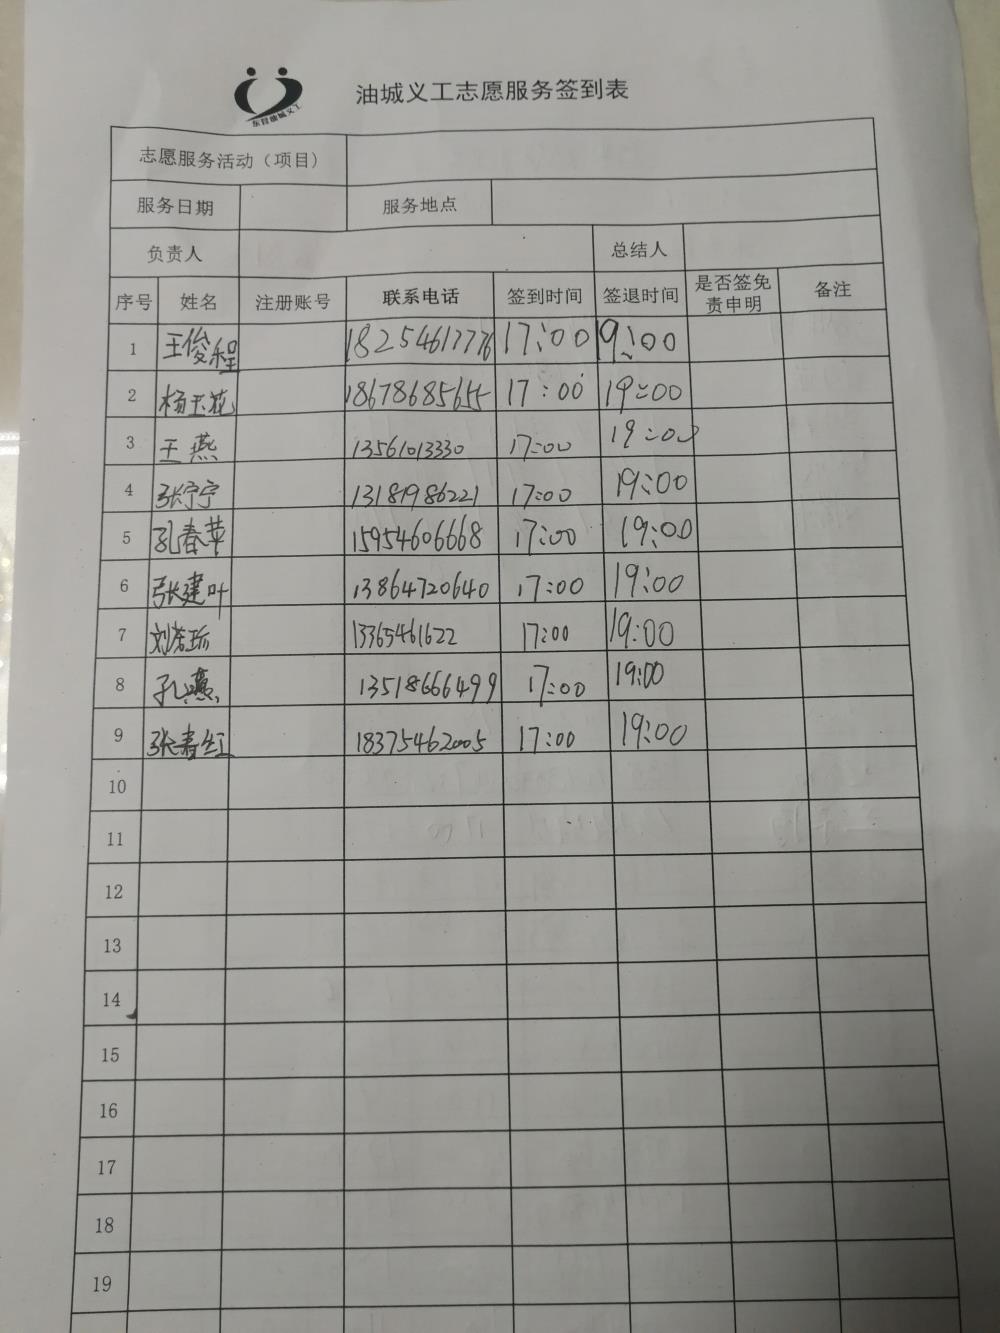 东营油城义工
油城义工志愿服务签到表
志愿服务活动（项目）
服务日期 服务地点
负责人 总结人
序号 姓名 注册账号 联系电话 签到时间 签退时间 是否签免责申明 备注
1 王俊程 18254617776 17:00 19:00
2 杨玉花 18678685655 17:00 19:00
3 王燕 13561013330 17:00 19:00
4 张宁宁 13181986221 17:00 19:00
5 孔春苹 15954606668 17:00 19:00
6 张建叶 13864720640 17:00 19:00
7 刘 13365461622 17:00 19:00
8 孔燕 13518666499 17:00 19:00
9 张春红 18375462005 17:00 19:00
10
11
12
13
14
15
16
17
18
19